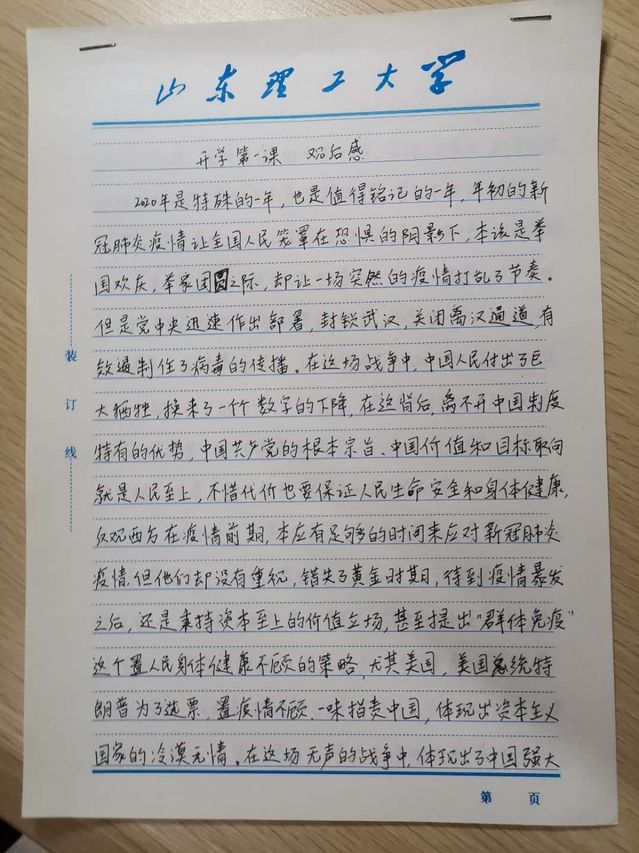 山东理工大学
开学第一课 观后感
2020年是特殊的一年，也是值得铭记的一年，年初的新
冠肺炎疫情让全国人民笼罩在恐惧的阴影下，本该是举
国欢庆，举家团圆之际，却让一场突然的疫情打乱了节奏。
但是党中央迅速作出部署，封锁武汉，关闭离汉通道，有
效遏制住了病毒的传播。在这场战争中，中国人民付出了巨
大牺牲，换来了一个个数字的下降，在这背后，离不开中国制度
特有的优势，中国共产党的根本宗旨、中国价值和目标取向
就是人民至上，不惜代价也要保证人民生命安全和身体健康，
反观西方在疫情前期，本应有足够的时间来应对新冠肺炎
疫情，但他们却没有重视，错失了黄金时期，待到疫情暴发
之后，还是秉持资本至上的价值立场，甚至提出"群体免疫"
这个置人民身体健康不顾的策略，尤其美国，美国总统特
朗普为了选票，置疫情不顾，一味指责中国，体现出资本主义
国家的冷漠无情。在这场无声的战争中，体现出了中国强大
装
订
线
第 页